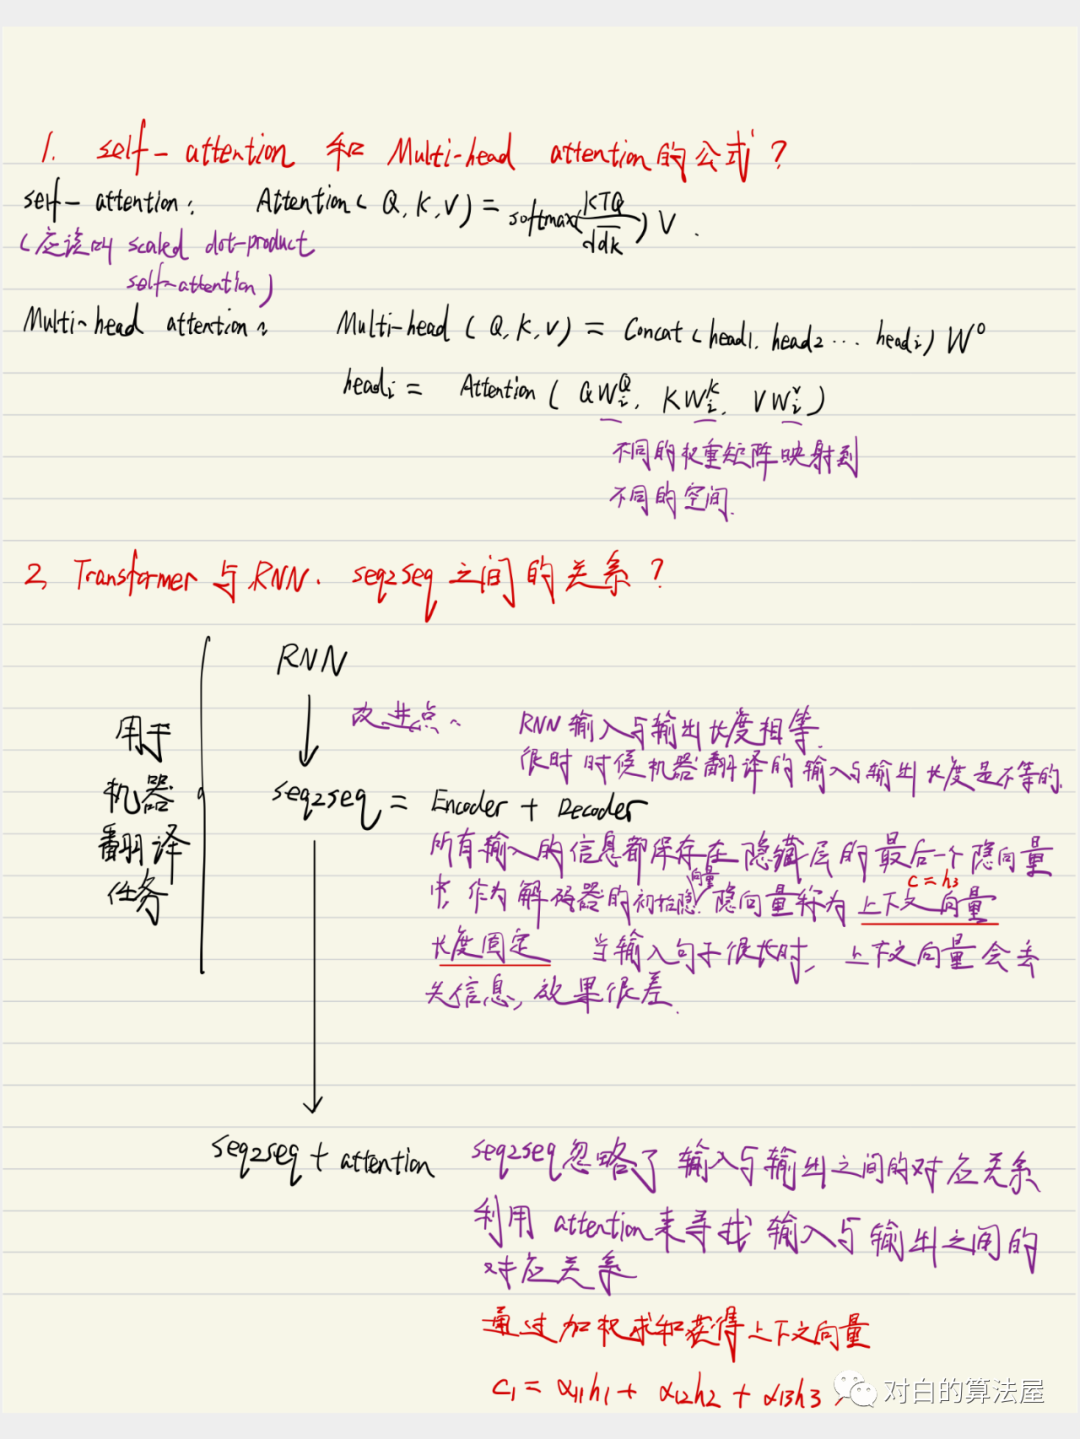 1. self-attention 和 Multi-head attention的公式?
self-attention: Attention(Q,K,V) = softmax(KTQ/√dk)V.
(应该叫 scaled dot-product
self-attention)
Multi-head attention: Multi-head(Q,K,V) = Concat(head1, head2 ... headi)W^O
headi = Attention(QWi^Q, KWi^K, VWi^V)
不同的权重矩阵映射到
不同的空间.
2, Transformer与RNN、seq2seq之间的关系?
用于
机器
翻译
任务
RNN
改进点、 RNN输入与输出长度相等.
很时时侯机器翻译的输入与输出长度是不等的.
seq2seq = Encoder + Decoder
所有输入的信息都保存在隐藏层的最后一个隐向量
中,作为解码器的初始隐向量.隐向量称为上下文向量
c=h3
长度固定 当输入句子很长时,上下文向量会丢
失信息,效果很差.
seq2seq + attention
seq2seq忽略了输入与输出之间的对应关系
利用attention来寻找输入与输出之间的
对应关系
通过加权求和获得上下文向量
c1 = α11h1 + α12h2 + α13h3
对白的算法屋